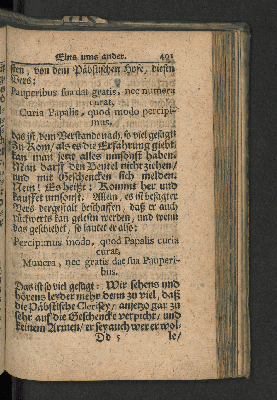 Eins ums ander. 491
sten, von dem Päbstischen Hofe, diesen
Vers:
Pauperibus sua dat gratis, nec munera
curat,
Curia Papalis, quod modo percipi-
mus.
Das ist, dem Verstande nach, so viel gesagt
Zu Rom, als es die Erfahrung giebt,
kan man jetzt alles umsonst haben.
Man darff den Beutel nicht ziehen/
und mit Geschencken sich melden:
Nein! Es heißt: Kommt her und
kauffet umsonst. Allein, es ist besagter
Vers dergestalt beschaffen, daß er auch
rückwerts kan gelesen werden, und wenn
das geschiehet, so lautet er also:
Percipimus modo, quod Papalis curia
curat,
Munera, nec gratis dat sua Pauperi-
bus.
Das ist so viel gesagt: Wir sehens und
hörens leyder mehr denn zu viel, daß
die Päbstische Clerisey/ anjetzo gar zu
sehr auf die Geschencke verpicht/ und
keinem Armen/ er sey auch wer er wol-
Dd 5 le/